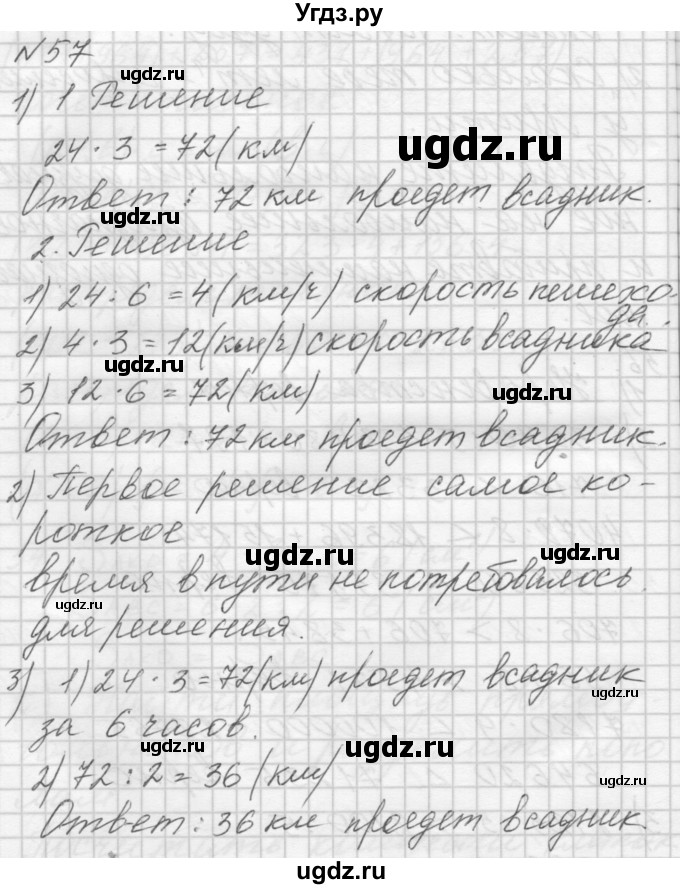 Угдз.ру
№57
ugdz.ru
1) 1 Решение
24 · 3 = 72 (км)
ugdz.ru
Ответ: 72 км проедет всадник.
ugdz.ru
2. Решение
1) 24 : 6 = 4 (км/ч) скорость пешехо-
да.
2) 4 · 3 = 12 (км/ч) скорость всадника
3) 12 · 6 = 72 (км)
ugdz.ru
Ответ: 72 км проедет всадник.
ugdz.ru
2) Первое решение самое ко-
роткое
ugdz.ru
ugdz.ru
время в пути не потребовалось
ugdz.ru
для решения.
3) 1) 24 · 3 = 72 (км) проедет всадник
ugdz.ru
за 6 часов.
ugdz.ru
ugdz.ru
2) 72 : 2 = 36 (км)
ugdz.ru
Ответ: 36 км проедет всадник
ugdz.ru
ugdz.ru